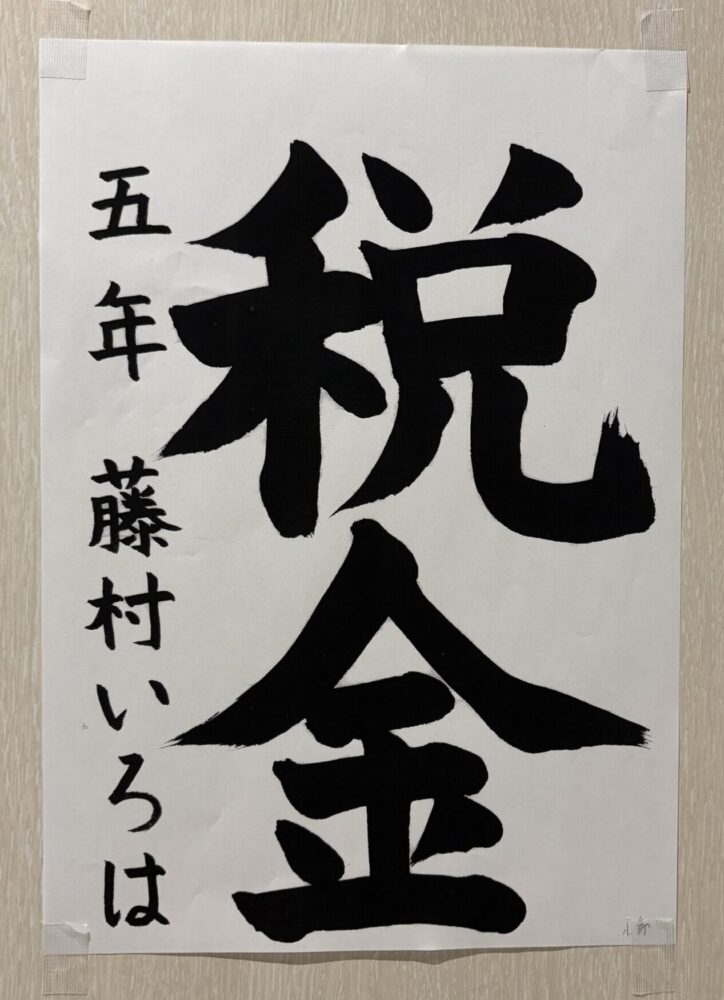 税金
五年 藤村いろは